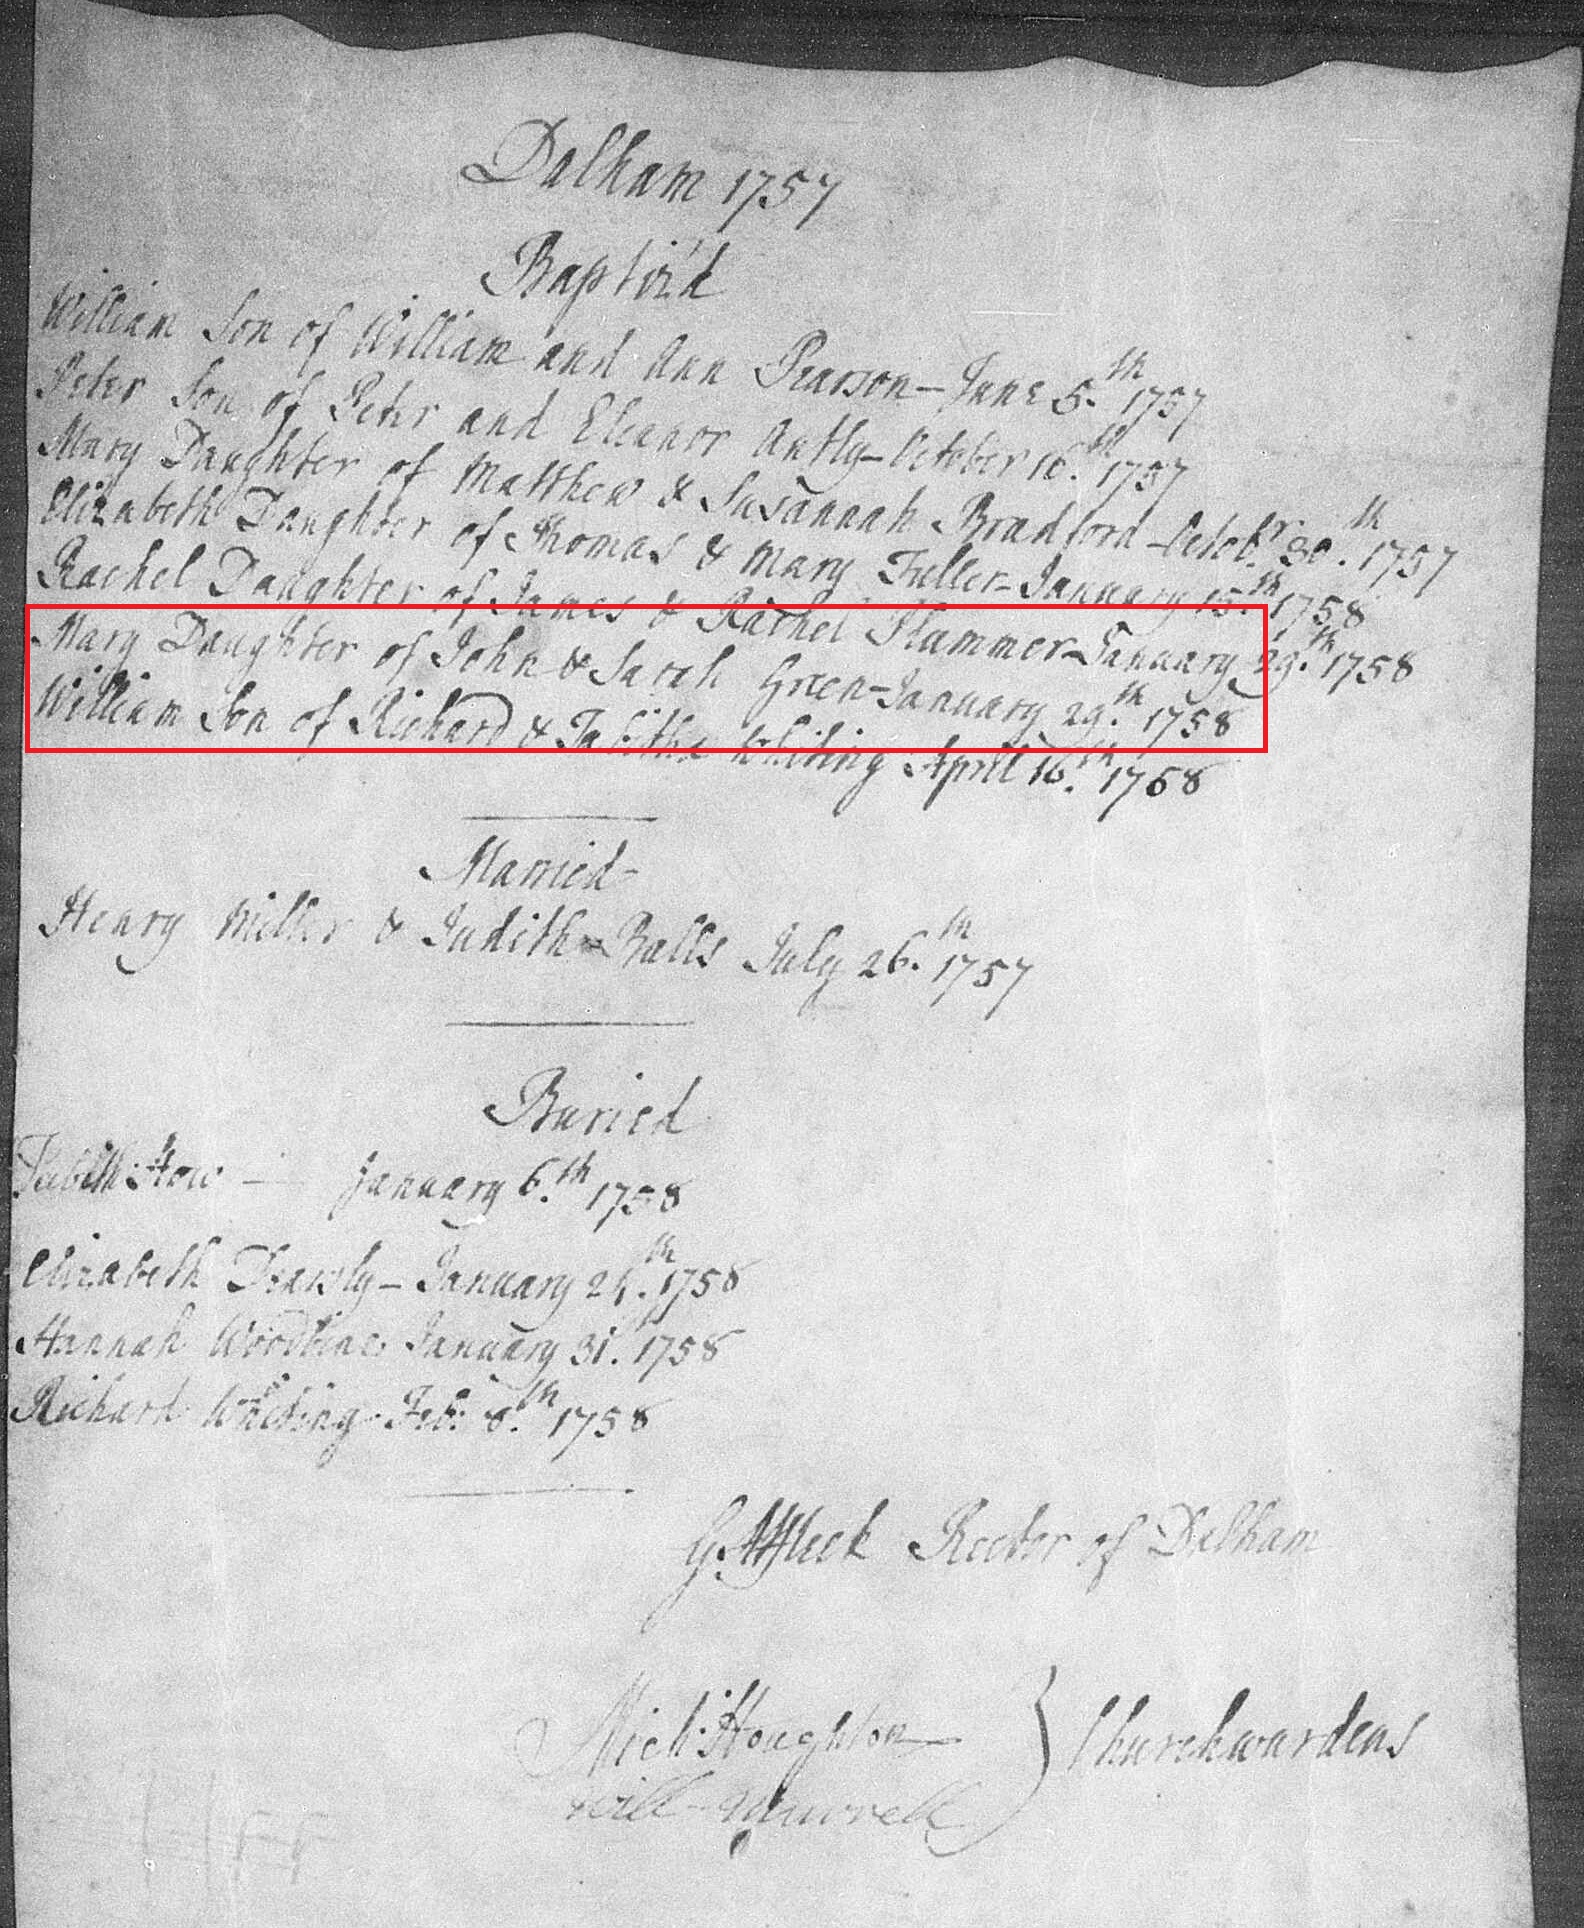 Dalham 1757
Baptiz'd
William Son of William and Ann Pearson – June 5.th 1757
Peter Son of Peter and Eleanor Antly – October 16.th 1757
Mary Daughter of Matthew & Susannah Bradford – Octobr. 30.th 1757
Elizabeth Daughter of Thomas & Mary Fuller – January 15.th 1758
Rachel Daughter of James & Rachel Plummer – January 29.th 1758
Mary Daughter of John & Sarah Green – January 29.th 1758
William Son of Richard & Tabitha Whiting April 16.th 1758
Married
Henry Miller & Judith Balls July 26.th 1757
Buried
How – January 6.th 1758
Elizabeth January 1758
Hannah Woodbine January 31. 1758
Richard Whiting Feb: 8.th 1758
G. Affleck Rector of Dalham
Mich: Houghton
Will Churchwardens